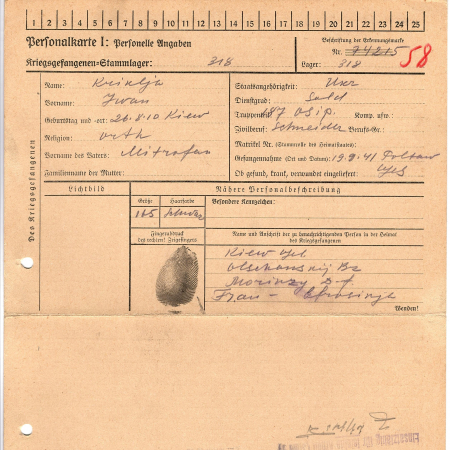 1 2 3 4 5 6 7 8 9 10 11 12 13 14 15 16 17 18 19 20 21 22 23 24 25
Personalkarte I: Personelle Angaben
Kriegsgefangenen-Stammlager: 318
Beschriftung der Erkennungsmarke
Nr. 74215 58
Lager: 318
Des Kriegsgefangenen
Name:
Vorname: Iwan
Geburtstag und -ort: 26.8.10 Kiew
Religion: orth
Vorname des Vaters: Mitrofan
Familienname der Mutter:
Staatsangehörigkeit:
Dienstgrad: Sold
Truppenteil: Komp. usw.:
Zivilberuf: Schneider Berufs-Gr.:
Matrikel Nr. (Stammrolle des Heimatstaates):
Gefangennahme (Ort und Datum): 19.9.41 Poltaw
Ob gesund, krank, verwundet eingeliefert:
Lichtbild
Nähere Personalbeschreibung
Größe
Haarfarbe
Besondere Kennzeichen:
165
Fingerabdruck
des rechten! Zeigefingers
Name und Anschrift der zu benachrichtigenden Person in der Heimat
des Kriegsgefangenen
Kiew
Frau -
Wenden!